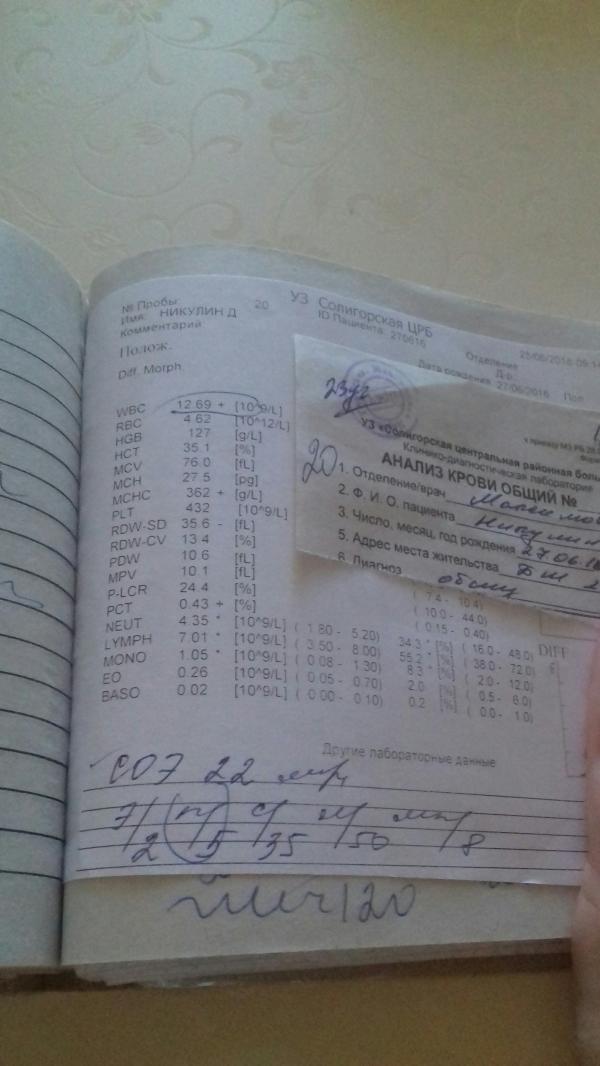 № Пробы: 20 УЗ Солигорская ЦРБ
Имя: НИКУЛИН Д ID Пациента: 270616
Комментарий Отделение
Полож. Д-р.
Diff. Morph. Дата рождения 27/06/2016 Пол
WBC 12.69 + [10^9/L]
RBC 4.62 [10^12/L]
HGB 127 [g/L]
HCT 35.1 [%]
MCV 76.0 [fL]
MCH 27.5 [pg]
MCHC 362 + [g/L]
PLT 432 [10^9/L]
RDW-SD 35.6 - [fL]
RDW-CV 13.4 [%]
PDW 10.6 [fL]
MPV 10.1 [fL] ( 7.4 - 10.4)
P-LCR 24.4 [%] ( 10.0 - 44.0)
PCT 0.43 + [%] ( 0.15 - 0.40)
NEUT 4.35 * [10^9/L] ( 1.80 - 5.20) 34.3 * [%] ( 16.0 - 48.0)
LYMPH 7.01 * [10^9/L] ( 3.50 - 8.00) 55.2 * [%] ( 38.0 - 72.0)
MONO 1.05 * [10^9/L] ( 0.08 - 1.30) 8.3 * [%] ( 2.0 - 12.0)
EO 0.26 [10^9/L] ( 0.05 - 0.70) 2.0 [%] ( 0.5 - 6.0)
BASO 0.02 [10^9/L] ( 0.00 - 0.10) 0.2 [%] ( 0.0 - 1.0)
DIFF
Другие лабораторные данные
СОЭ 22 мм/ч
Э/2 п/5 с/35 л/50 мн/8
УЗ «Солигорская центральная районная боль
Клинико-диагностическая лаборатория
АНАЛИЗ КРОВИ ОБЩИЙ №
20
1. Отделение/врач
2. Ф. И. О. пациента Никулин
3. Число, месяц, год рождения 27.06.16
5. Адрес места жительства
6. Диагноз